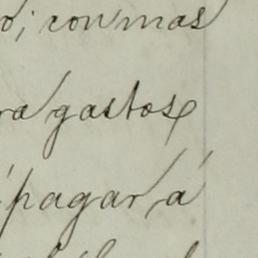 o; con mas
ra gastos
pagar á